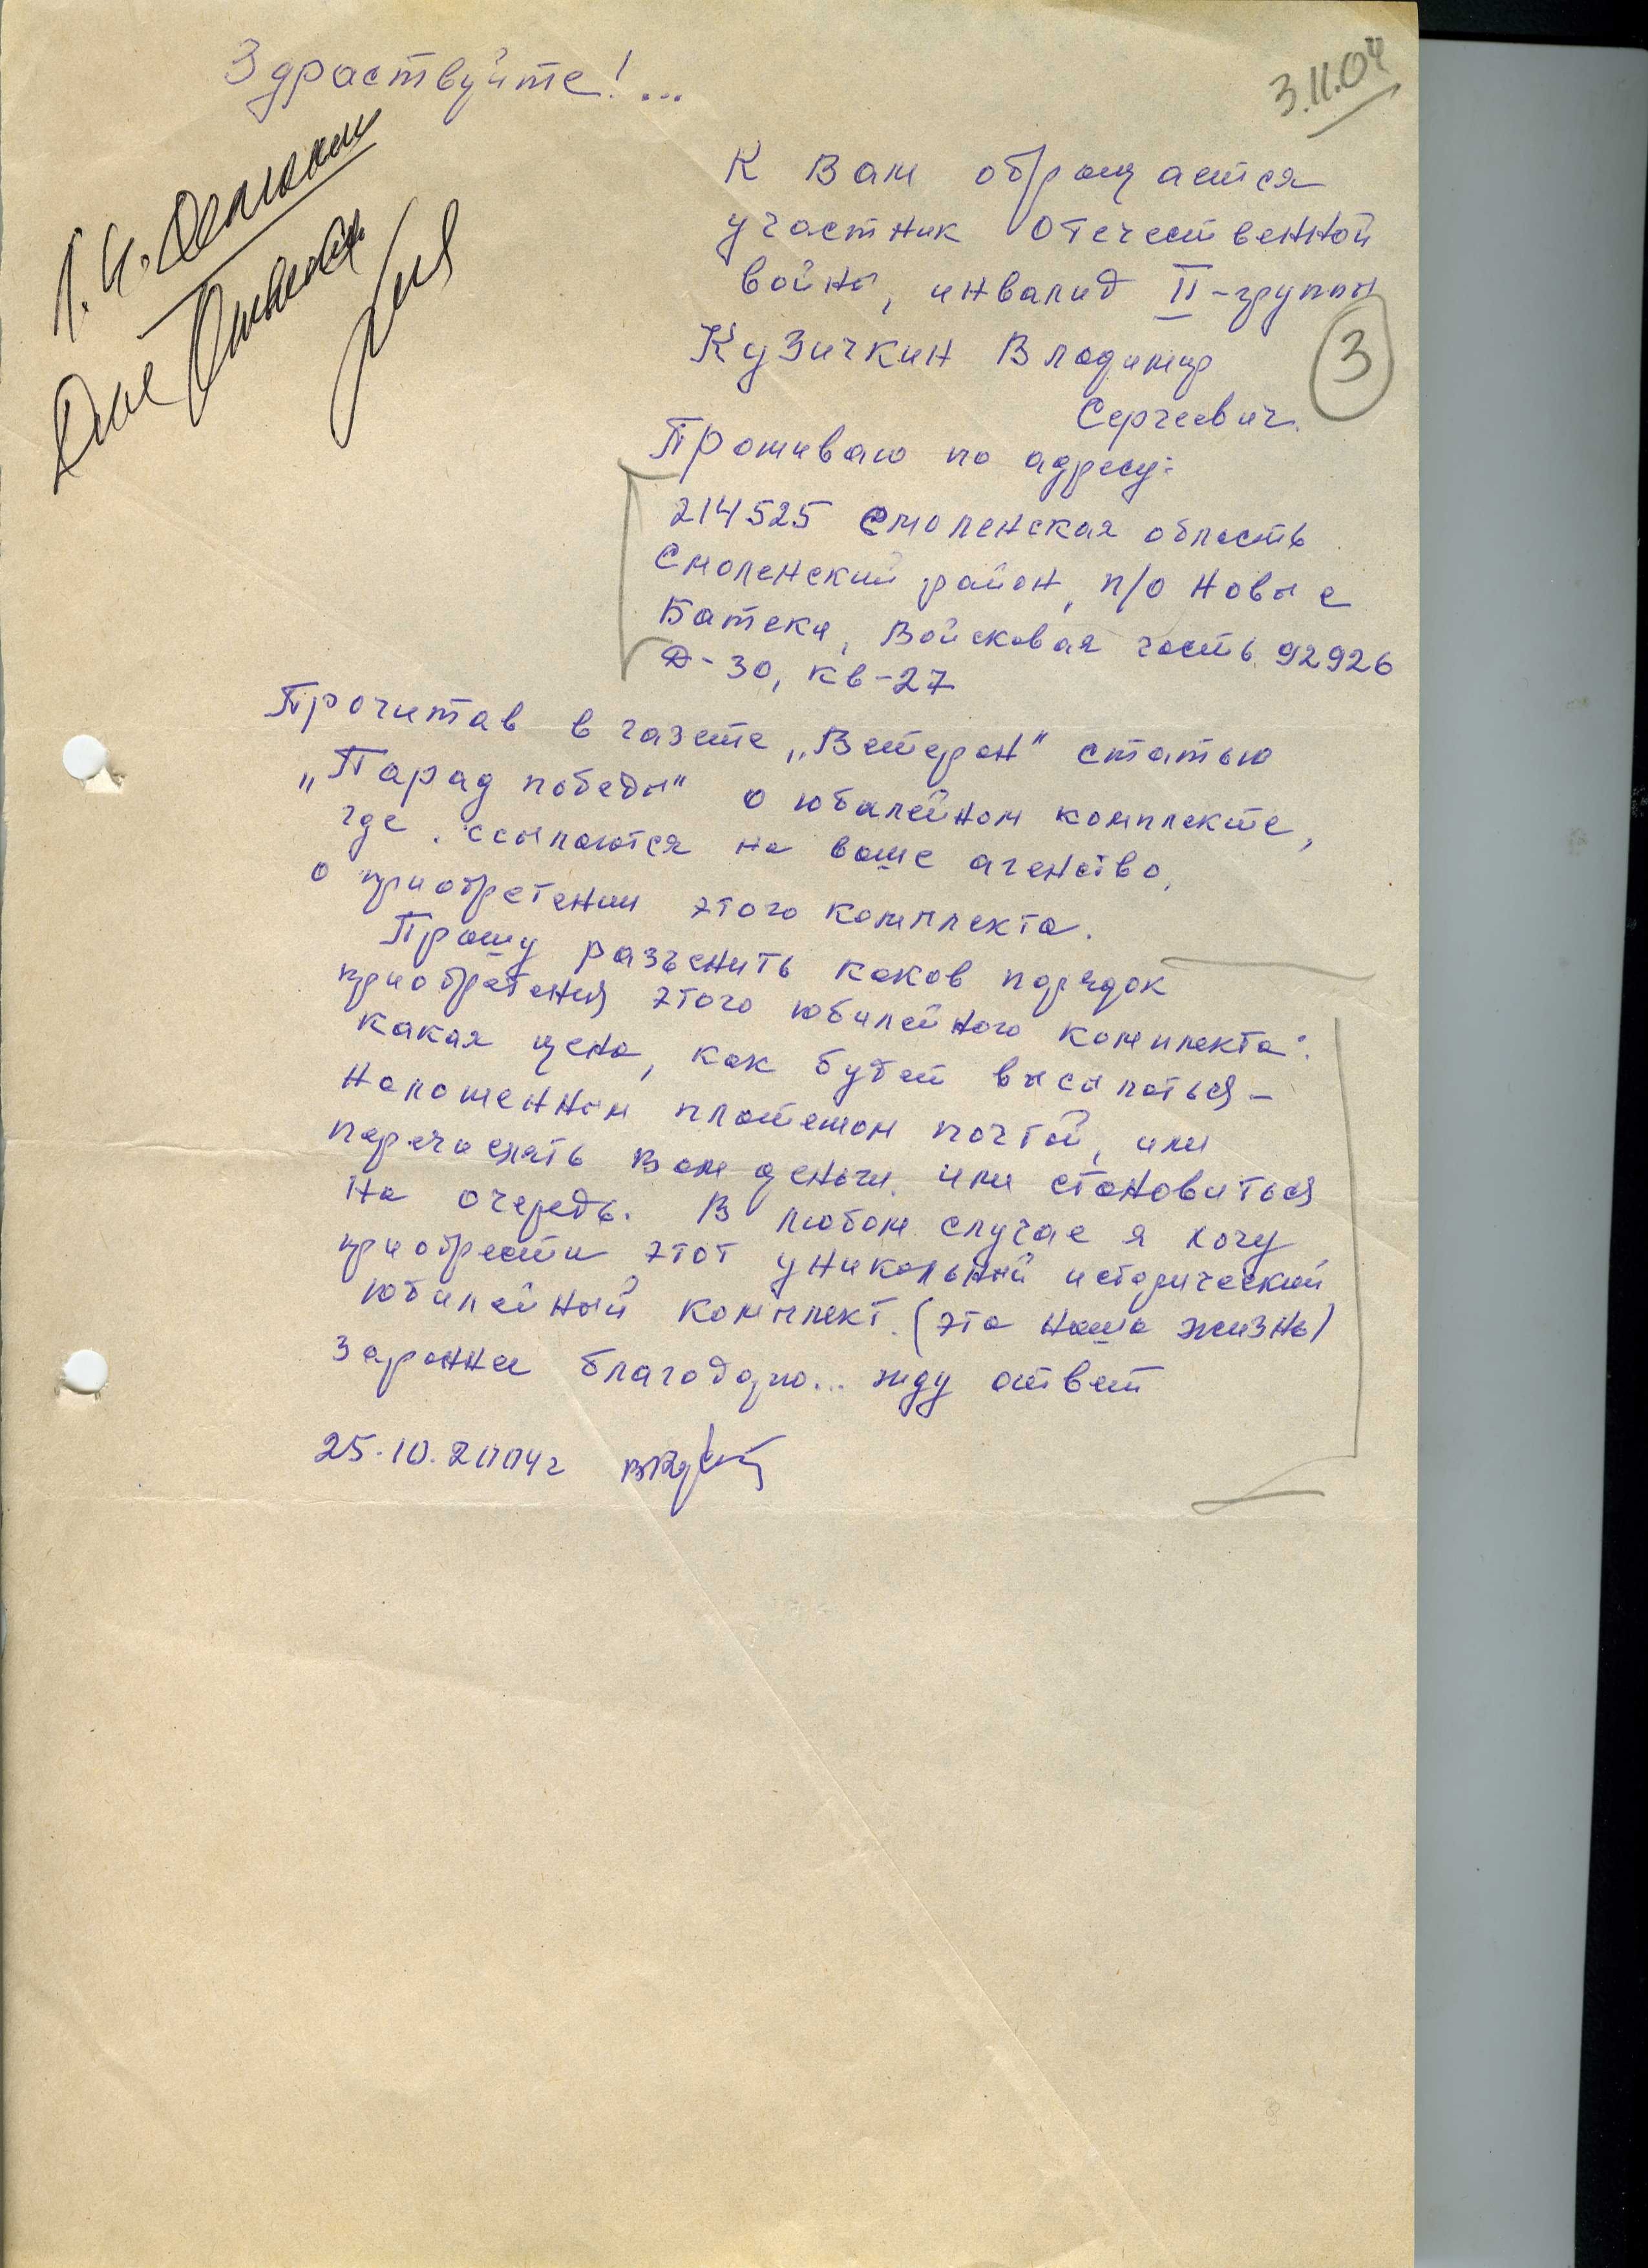 Здраствуйте!...
3.11.04
К Вам обращается
участник Отечественной
войны, инвалид II-группы
3
Кузичкин Владимир
Сергеевич.
Проживаю по адресу:
214525 Смоленская область
Смоленский район, п/о Новые
Батеки, Войсковая часть 92926
Д-30, кв-27
Прочитав в газете „Ветеран" статью
„Парад победы" о юбилейном комплекте,
где ссылаются на ваше агенство,
о приобретении этого комплекта.
Прошу разъенить каков порядок
приобретения этого юбилейного комплекта:
какая цена, как будет высылаться –
наложенным платежом почтой, или
перечислять Вам деньги, или становиться
на очередь. В любом случае я хочу
приобрести этот уникальный исторический
юбилейный комплект. (это наша жизнь)
Заранее благодарю... жду ответ
25.10.2004г